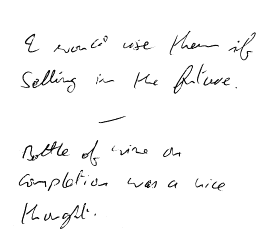 I would use them if
selling in the future.
—
Bottle of wine on
completion was a nice
thought.